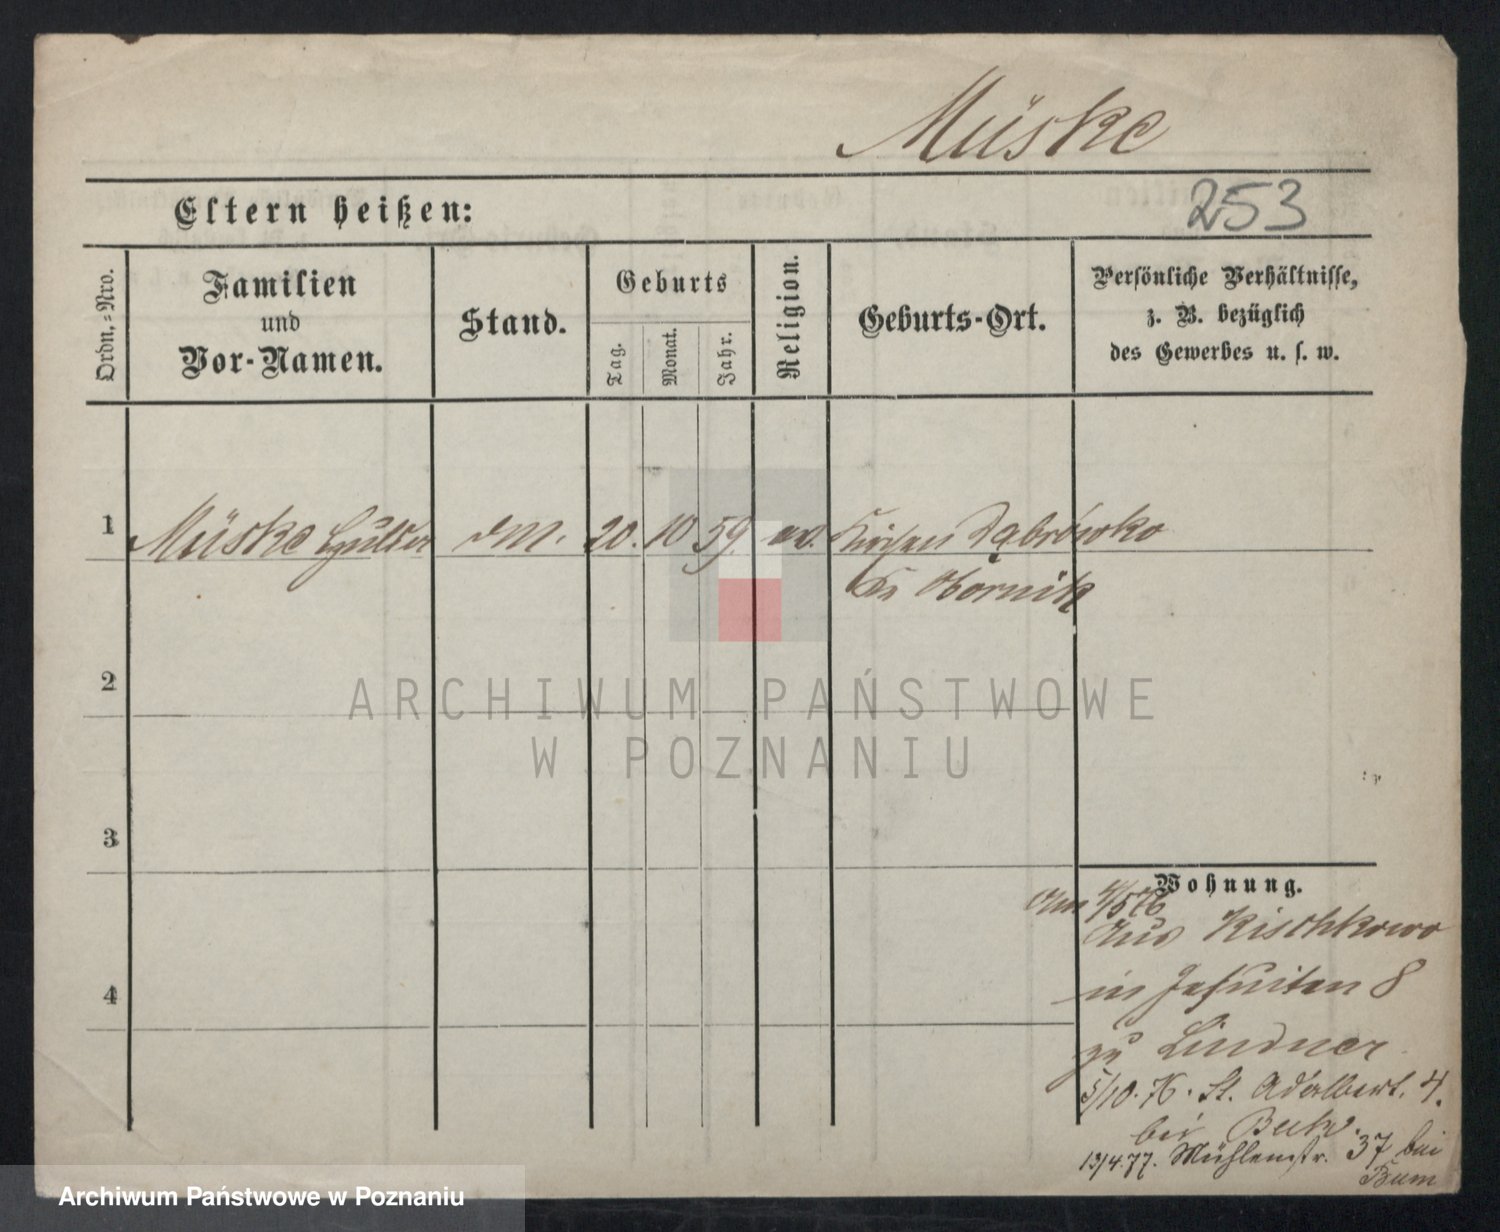 Müske
Eltern heißen:
253
Ordn.-Nro.
Familien
und
Vor-Namen.
Stand.
Geburts
Tag.
Monat.
Jahr.
Religion.
Geburts-Ort.
Persönliche Verhältnisse,
z. B. bezüglich
des Gewerbes u. s. w.
1
Müske
20. 10 59. ev. Dąbrówko
Obornik
2
ARCHIWUM PAŃSTWOWE
W POZNANIU
3
Wohnung.
Am 4/5 76
Aus Kischkowo
in Jesuiten 8
4
zu Lindner
5/10. 76. St. Adalbert. 4.
bei
13/4.77. Mühlenstr. 37 bei
Archiwum Państwowe w Poznaniu